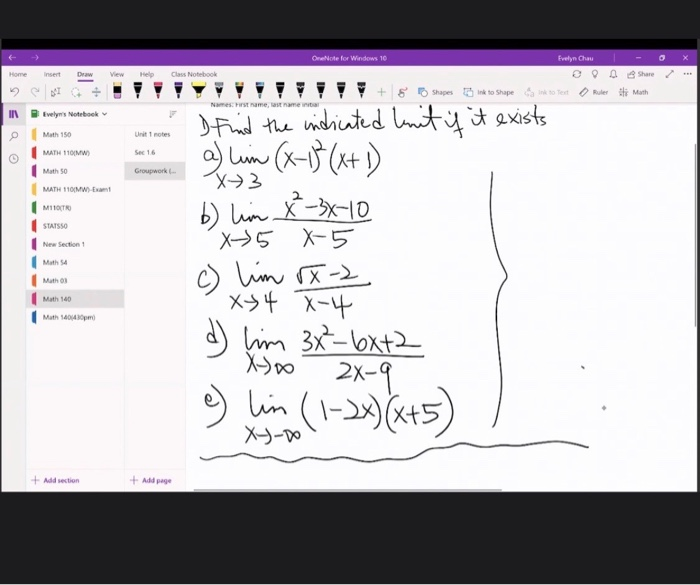 OneNote for Windows 10
Evelyn Chau
Home Insert Draw View Help Class Notebook
Share
Shapes Ink to Shape Ink to Text Ruler Math
Evelyn's Notebook
Math 150
MATH 110(MW)
Math 50
MATH 110(MW)-Exam1
M110(TR)
STATS50
New Section 1
Math 54
Math 03
Math 140
Math 140(430pm)
+ Add section
Unit 1 notes
Sec 1.6
Groupwork (...
+ Add page
Names: First name, last name initial
1) Find the indicated limit if it exists
a) lim (x-1)² (x+1)
x→3
b) lim x²-3x-10
x→5 x-5
c) lim √x -2
x→4 x-4
d) lim 3x²-6x+2
x→∞ 2x-9
e) lim (1-2x)(x+5)
x→-∞